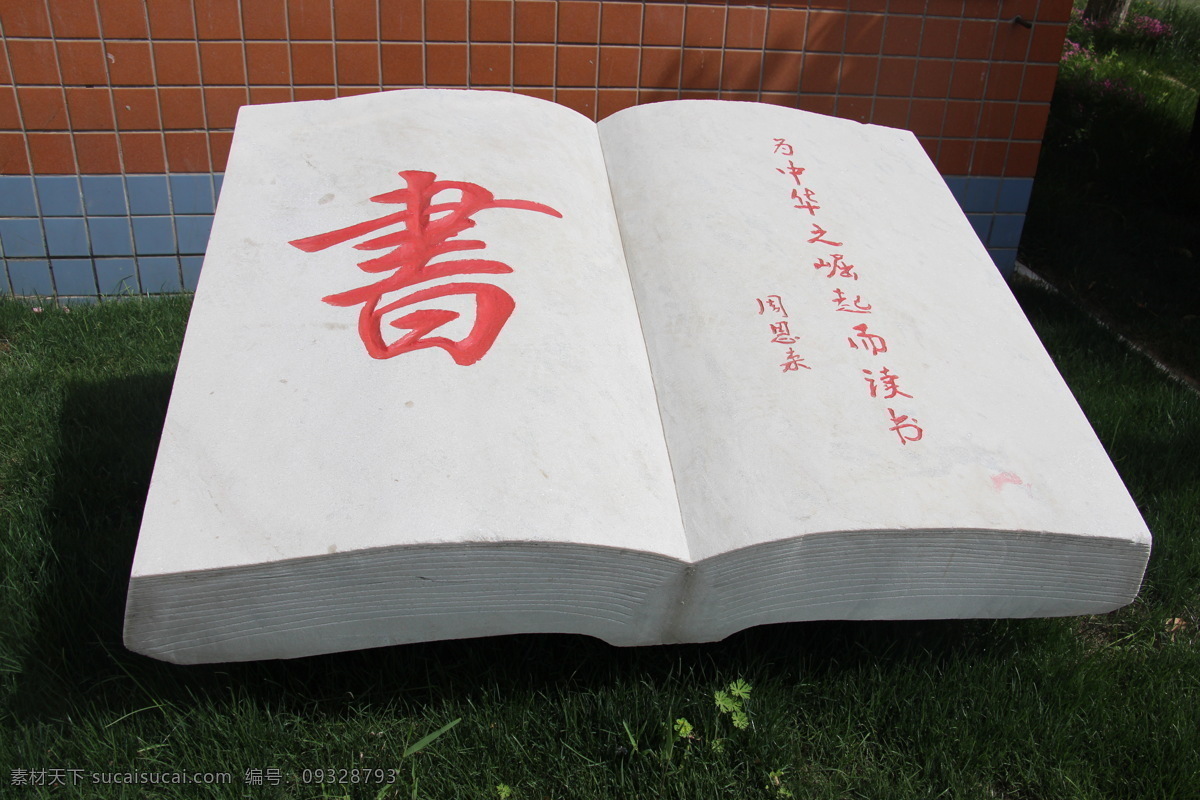 書
为中华之崛起而读书
周恩来
素材天下 sucaisucai.com 编号：09328793